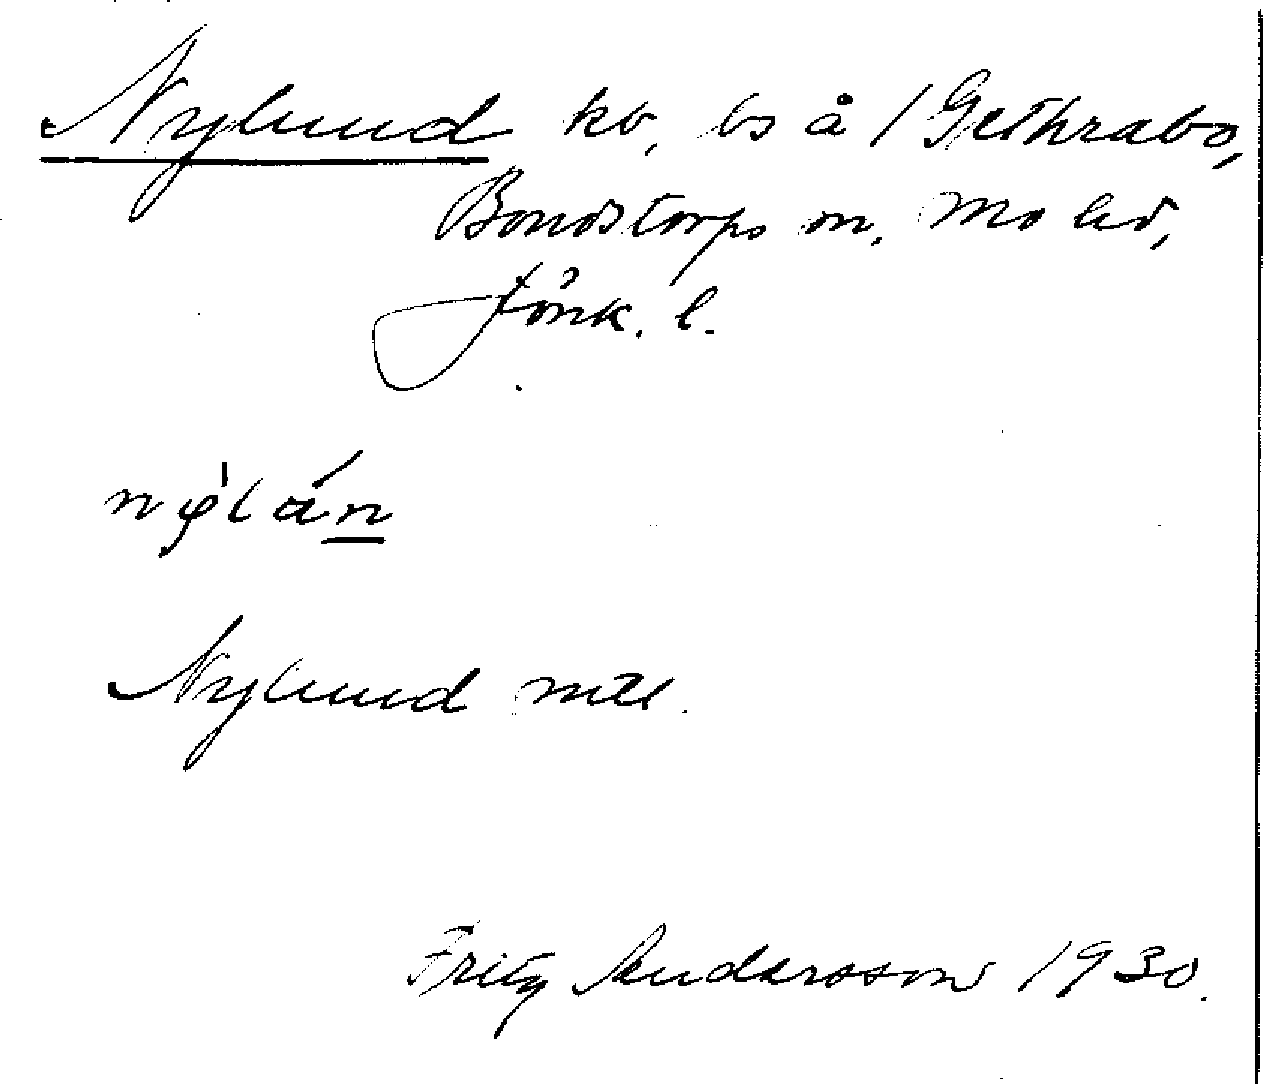 Nylund kv, bs å /Gethrabo,
Bondstorps sn, Mo hd,
Jönk. l.
nýlán
Nylund mtl.
Fritz Andersson 1930.